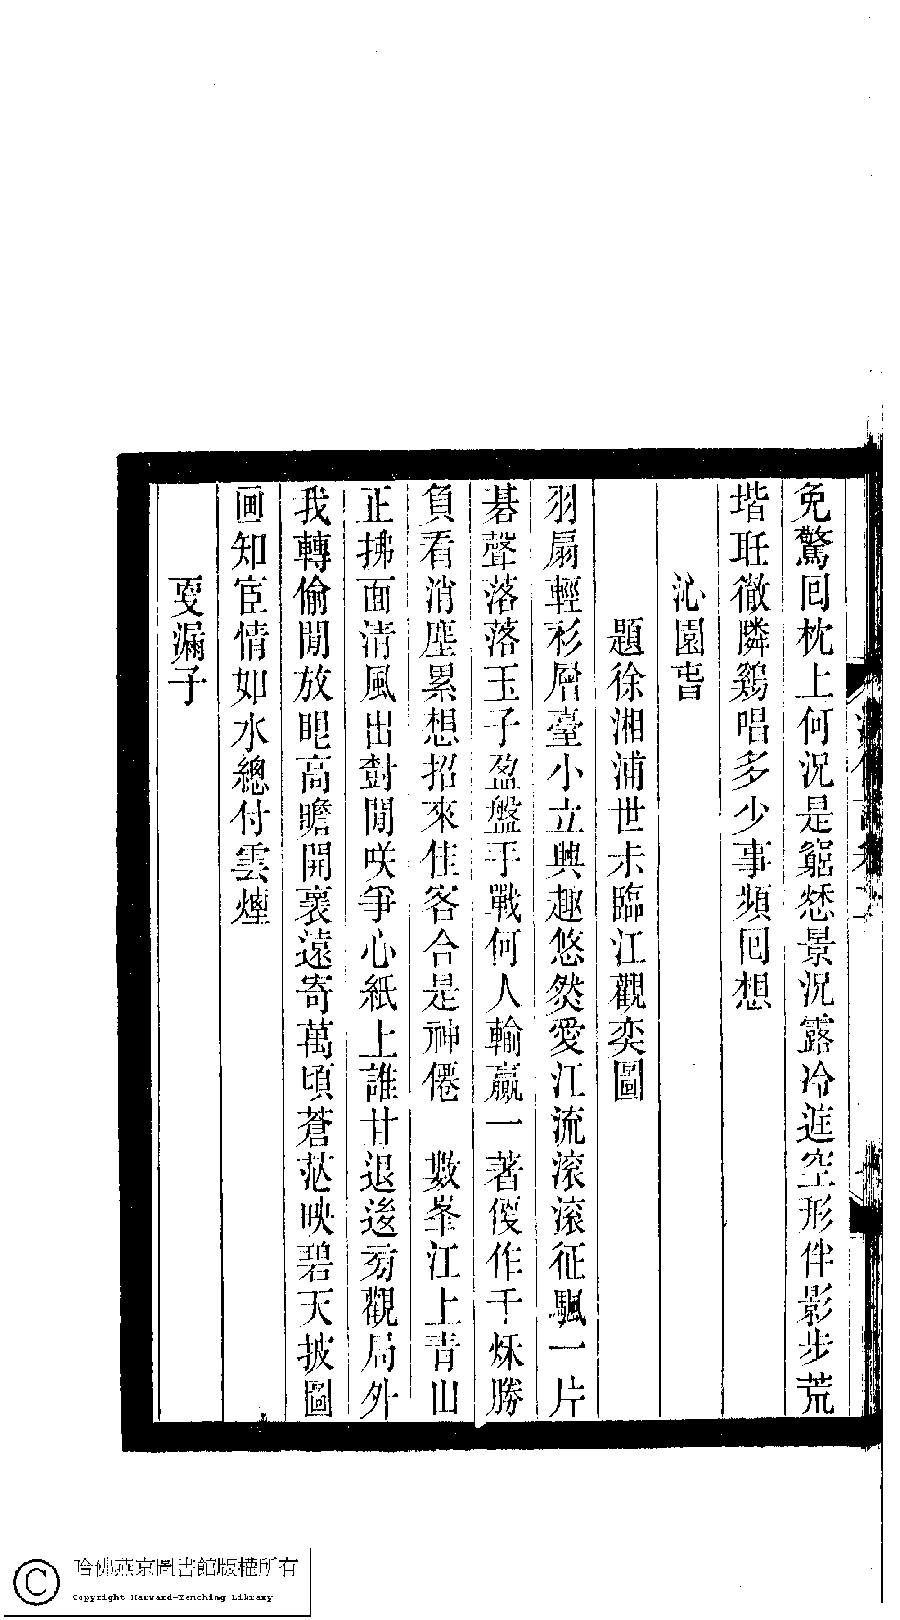 免驚囘枕上何況是窮愁景況露冷莚空形伴影步荒
堦玨徹隣鷄唱多少事頻囘想
沁園萅
題徐湘浦世未臨江觀奕圖
羽扇輕衫層臺小立興趣悠然愛江流滚滚征颿一片
碁聲落落玉子盈盤手戰何人輸贏一著便作千秌勝
負看消塵累想招來佳客合是神僊　數峯江上青山
正拂面清風出對閒咲爭心紙上誰甘退逡㫄觀局外
我轉偷閒放眼高瞻開襄遠寄萬頃蒼茫映碧天披圖
画知宦情如水總付雲煙
叓漏子
哈佛燕京圖書館版權所有
Copyright Harvard-Yenching Library